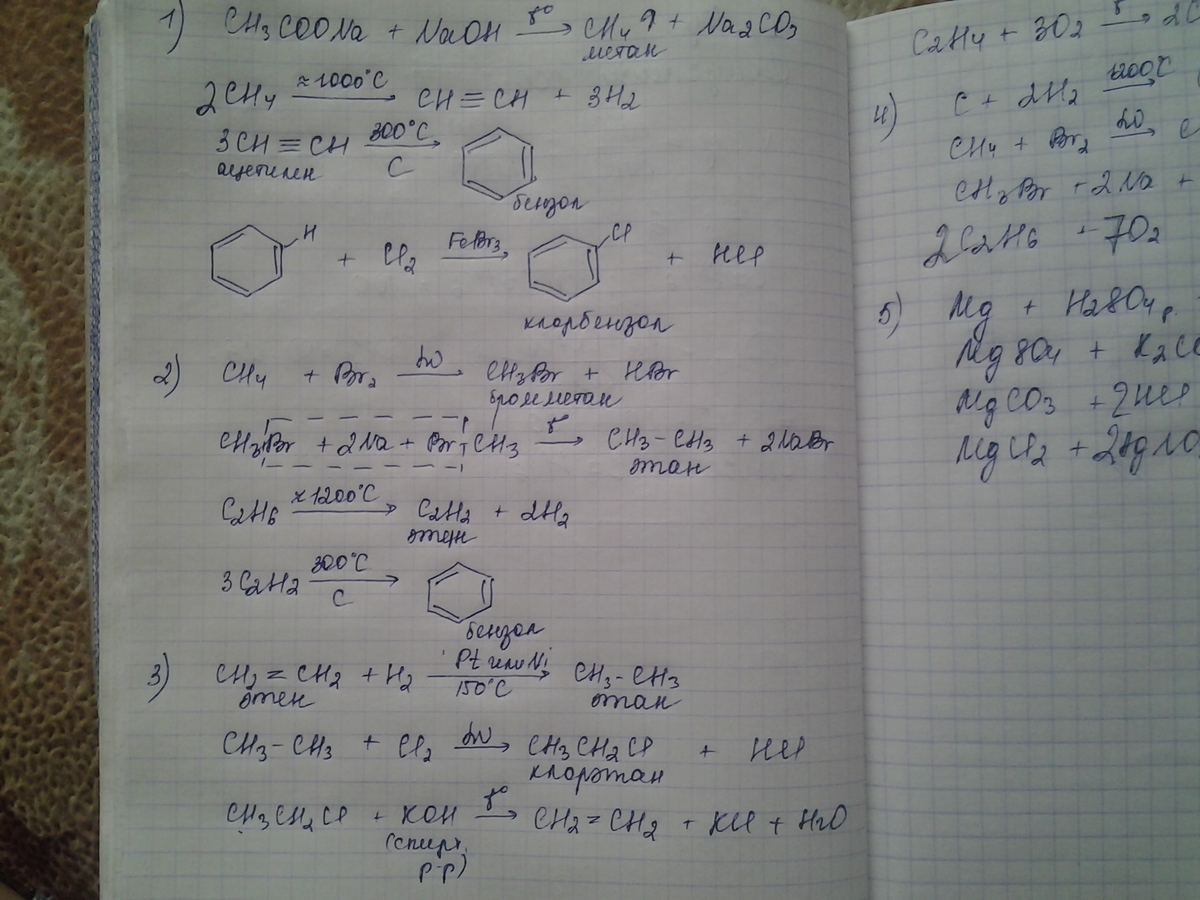 1) CH3COONa + NaOH t° → CH4↑ + Na2CO3
метан
2CH4 ≈1000°C → CH≡CH + 3H2
3CH≡CH 300°C → C
ацетилен
бензол
H + Cl2 FeBr3 → Cl + HCl
хлорбензол
2) CH4 + Br2 hν → CH3Br + HBr
бромметан
CH3Br + 2Na + Br CH3 t° → CH3-CH3 + 2NaBr
этан
C2H6 ≈1200°C → C2H2 + 2H2
3C2H2 300°C → C
бензол
3) CH2=CH2 + H2 Pt или Ni → 150°C CH3-CH3
этен этан
CH3-CH3 + Cl2 hν → CH3CH2Cl + HCl
хлорэтан
CH3CH2Cl + KOH t° → CH2=CH2 + KCl + H2O
(спирт.
р-р)
C2H4 + 3O2 t → 2C
4) C + 2H2 1200°C →
CH4 + Br2 hν → C
CH3Br + 2Na +
2C2H6 + 7O2
5) Mg + H2SO4 р.
MgSO4 + K2CO
MgCO3 + 2HCl
MgCl2 + 2AgNO